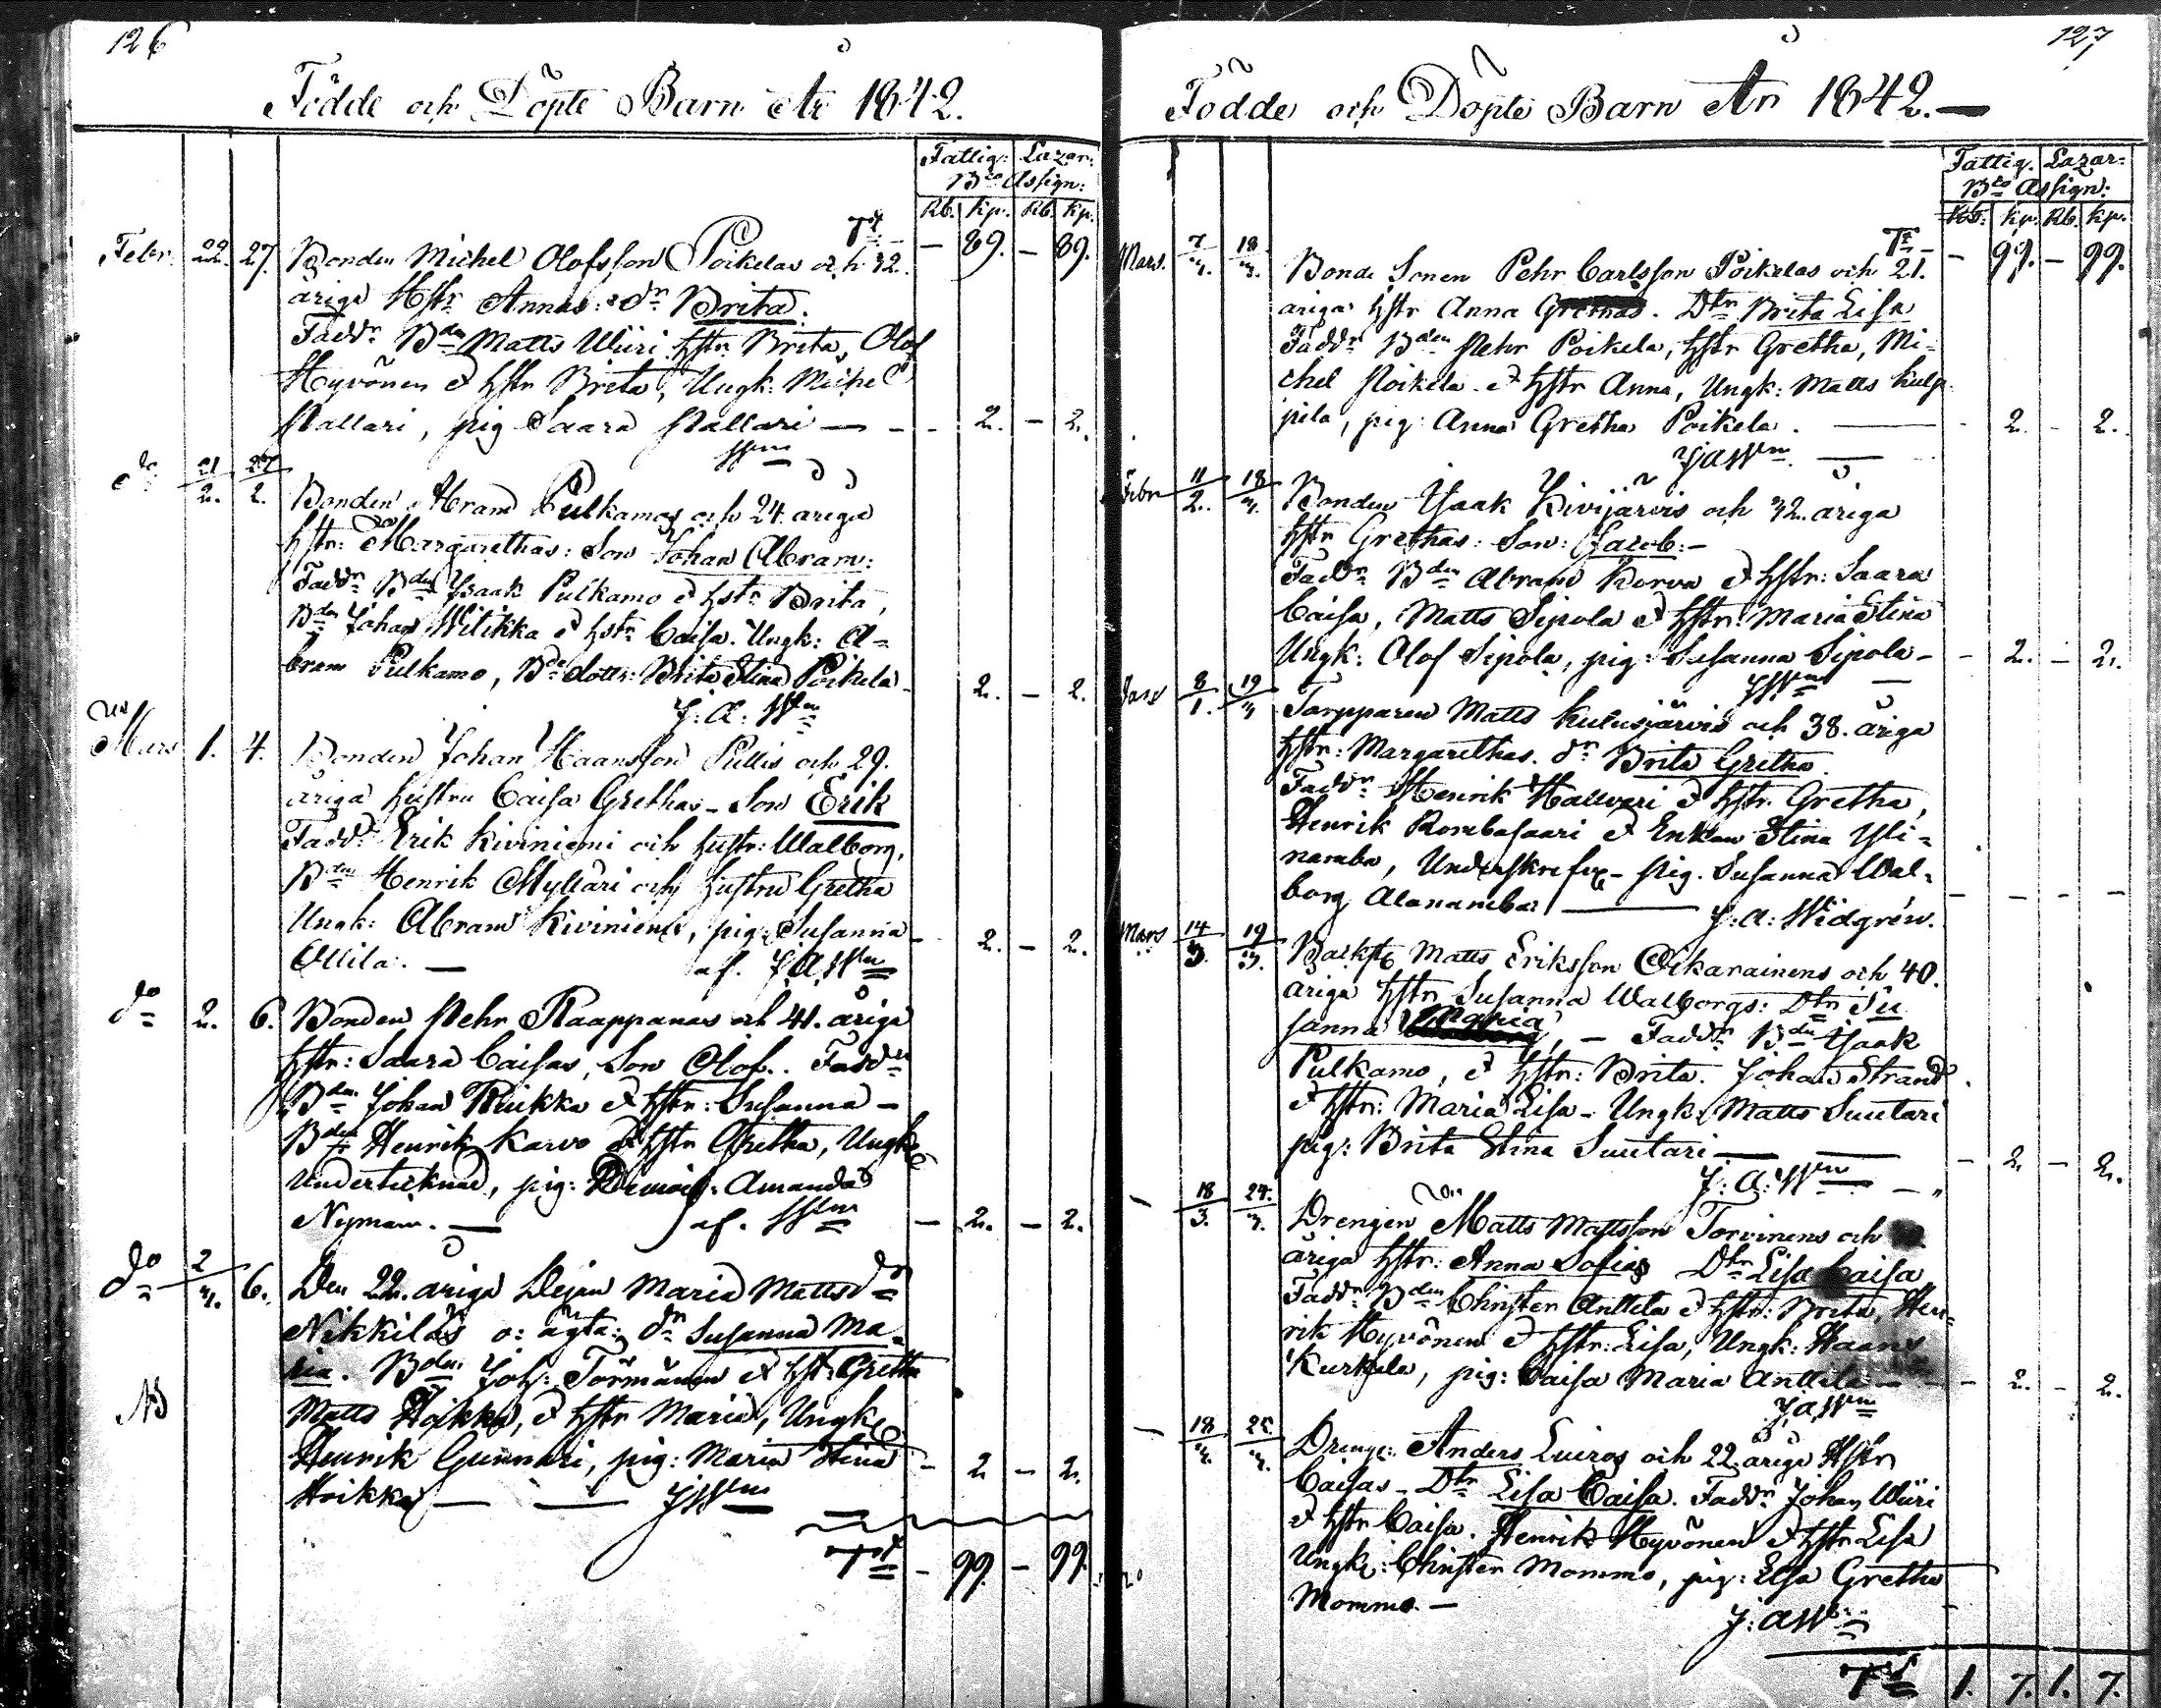 126
Födde och Döpte Barn År 1842.
Fattig: Lazar:
Bco Assign:
Rb. Kp. Rb. Kp.
Tt - 89. - 89.
Febr. 22. 27. Bonden Michel Olofsson Poikelas och 32.
åriga Hstr Annas: dr Brita.
Faddr Bden Matts Wiiri hstr Brita, Olof
Hyvönen & hstr Brita, Ungk: Michel
Pallari, pig Saara Pallari — - 2. - 2.
do 21/2. 27/2. Bonden Abram Pulkamos och 24. åriga
hstr: Margarethas: Son Johan Abram:
Faddr Bden Isaak Pulkamo & hstr Brita,
Bden Johan Wilikka & hstr Caisa. Ungk: A=
bram Pulkamo, Bde dottr: Brita Stina Poikela - 2. - 2.
J: A: Wm
Mars 1. 4. Bonden Johan Haansson Pullis och 29.
åriga hustru Caisa Grethas - Son Erik
Faddr Erik Kiviniemi och hustr: Walborg,
Bden Henrik Myllari och hustru Gretha
Ungk: Abram Kiviniemi, pig: Susanna - 2. - 2.
Ollila. — af. J A Wm
do 2. 6. Bonden Pehr Raappanas och 41. åriga
hstr: Saara Caisas, Son Olof. Faddr
Bden Johan Ruikka & hstr: Susanna -
Bden Henrik Karvo & hstr Gretha, Ungk
Undertecknad, pig: Amanda
Nyman. — af. - 2. - 2.
do 2/3. 6. Den 22. åriga Dejan Maria Mattsdr
Nikkiläs o: ägta: dr Susanna Ma-
ria. Bden Joh: Törmänen & hstr Gretha
NB Matts Hoikka, & hstr Maria, Ungk
Henrik Gunnari, pig: Maria Stina - 2 - 2.
Hoikka —
Tt - 99. - 99.
127
Födde och Döpte Barn År 1842. —
Fattig. Lazar:
Bco Assign:
Rb. Kp. Rb. Kp.
Tt - 99. - 99.
Mars. 7/3. 18/3. Bonde Sonen Pehr Carlsson Poikelas och 21.
åriga hstr Anna Grethas. Dtr Brita Lisa
Faddr Bden Pehr Poikela, hstr Gretha, Mi-
chel Poikela & hstr Anna, Ungk: Matts Kulp
pila, pig: Anna Gretha Poikela. — 2. - 2.
J A Wm.
Febr 11/2. 18/3. Bonden Isaak Kivijärvis och 32. åriga
hstr Grethas: Son: Jacob: -
Faddr Bden Abram Korva & hstr: Saara
Caisa, Matts Sipola & hstr: Maria Stina
Ungk: Olof Sipola, pig: Susanna Sipola - - 2. - 2.
Janr 8/1. 19/3 Torpparen Matts Kulusjärvis och 38. åriga
hstr: Margarethas. dr Brita Gretha.
Faddr Henrik Hallvari & hstr. Gretha,
Henrik Rombasaari & Enkan Stina Yli=
namba, Underskrefne - pig. Susanna Wal-
borg Alanamba. — J: A: Widgrén.
Mars 14/3. 19/3. Backst Matts Eriksson Oikarainens och 40.
åriga hstr Susanna Walborgs: Dtr Su
sanna Maria, - Faddr Bden Isaak
Pulkamo, & hstr: Brita. Johan Strand
& hstr: Maria Lisa - Ungk: Matts Suutari
pig: Brita Stina Suutari — - 2. - 2.
J: A: Wm
— 18/3. 24/3. Drengen Matts Mattsson Torvinens och
åriga hstr: Anna Sofias Dtr Lisa Caisa
Faddr Bden Christer Anttila & hstr: Brita, Hen-
rik Hyvönen & hstr: Lisa, Ungk: Haans
Kurkela, pig: Caisa Maria Anttila — - 2. - 2.
J, A, Wm
— 18/3. 25/3. Drenge: Anders Luiros och 22. åriga Hstr
Caisas - Dtr Lisa Caisa. Faddr Johan Wiiri
& hstr Caisa. Henrik Hyvönen & hstr Lisa
Ungk: Christer Mommo, pig: Elsa Gretha
Mommo. —
J: A W
Tt 1. 7. 1. 7.